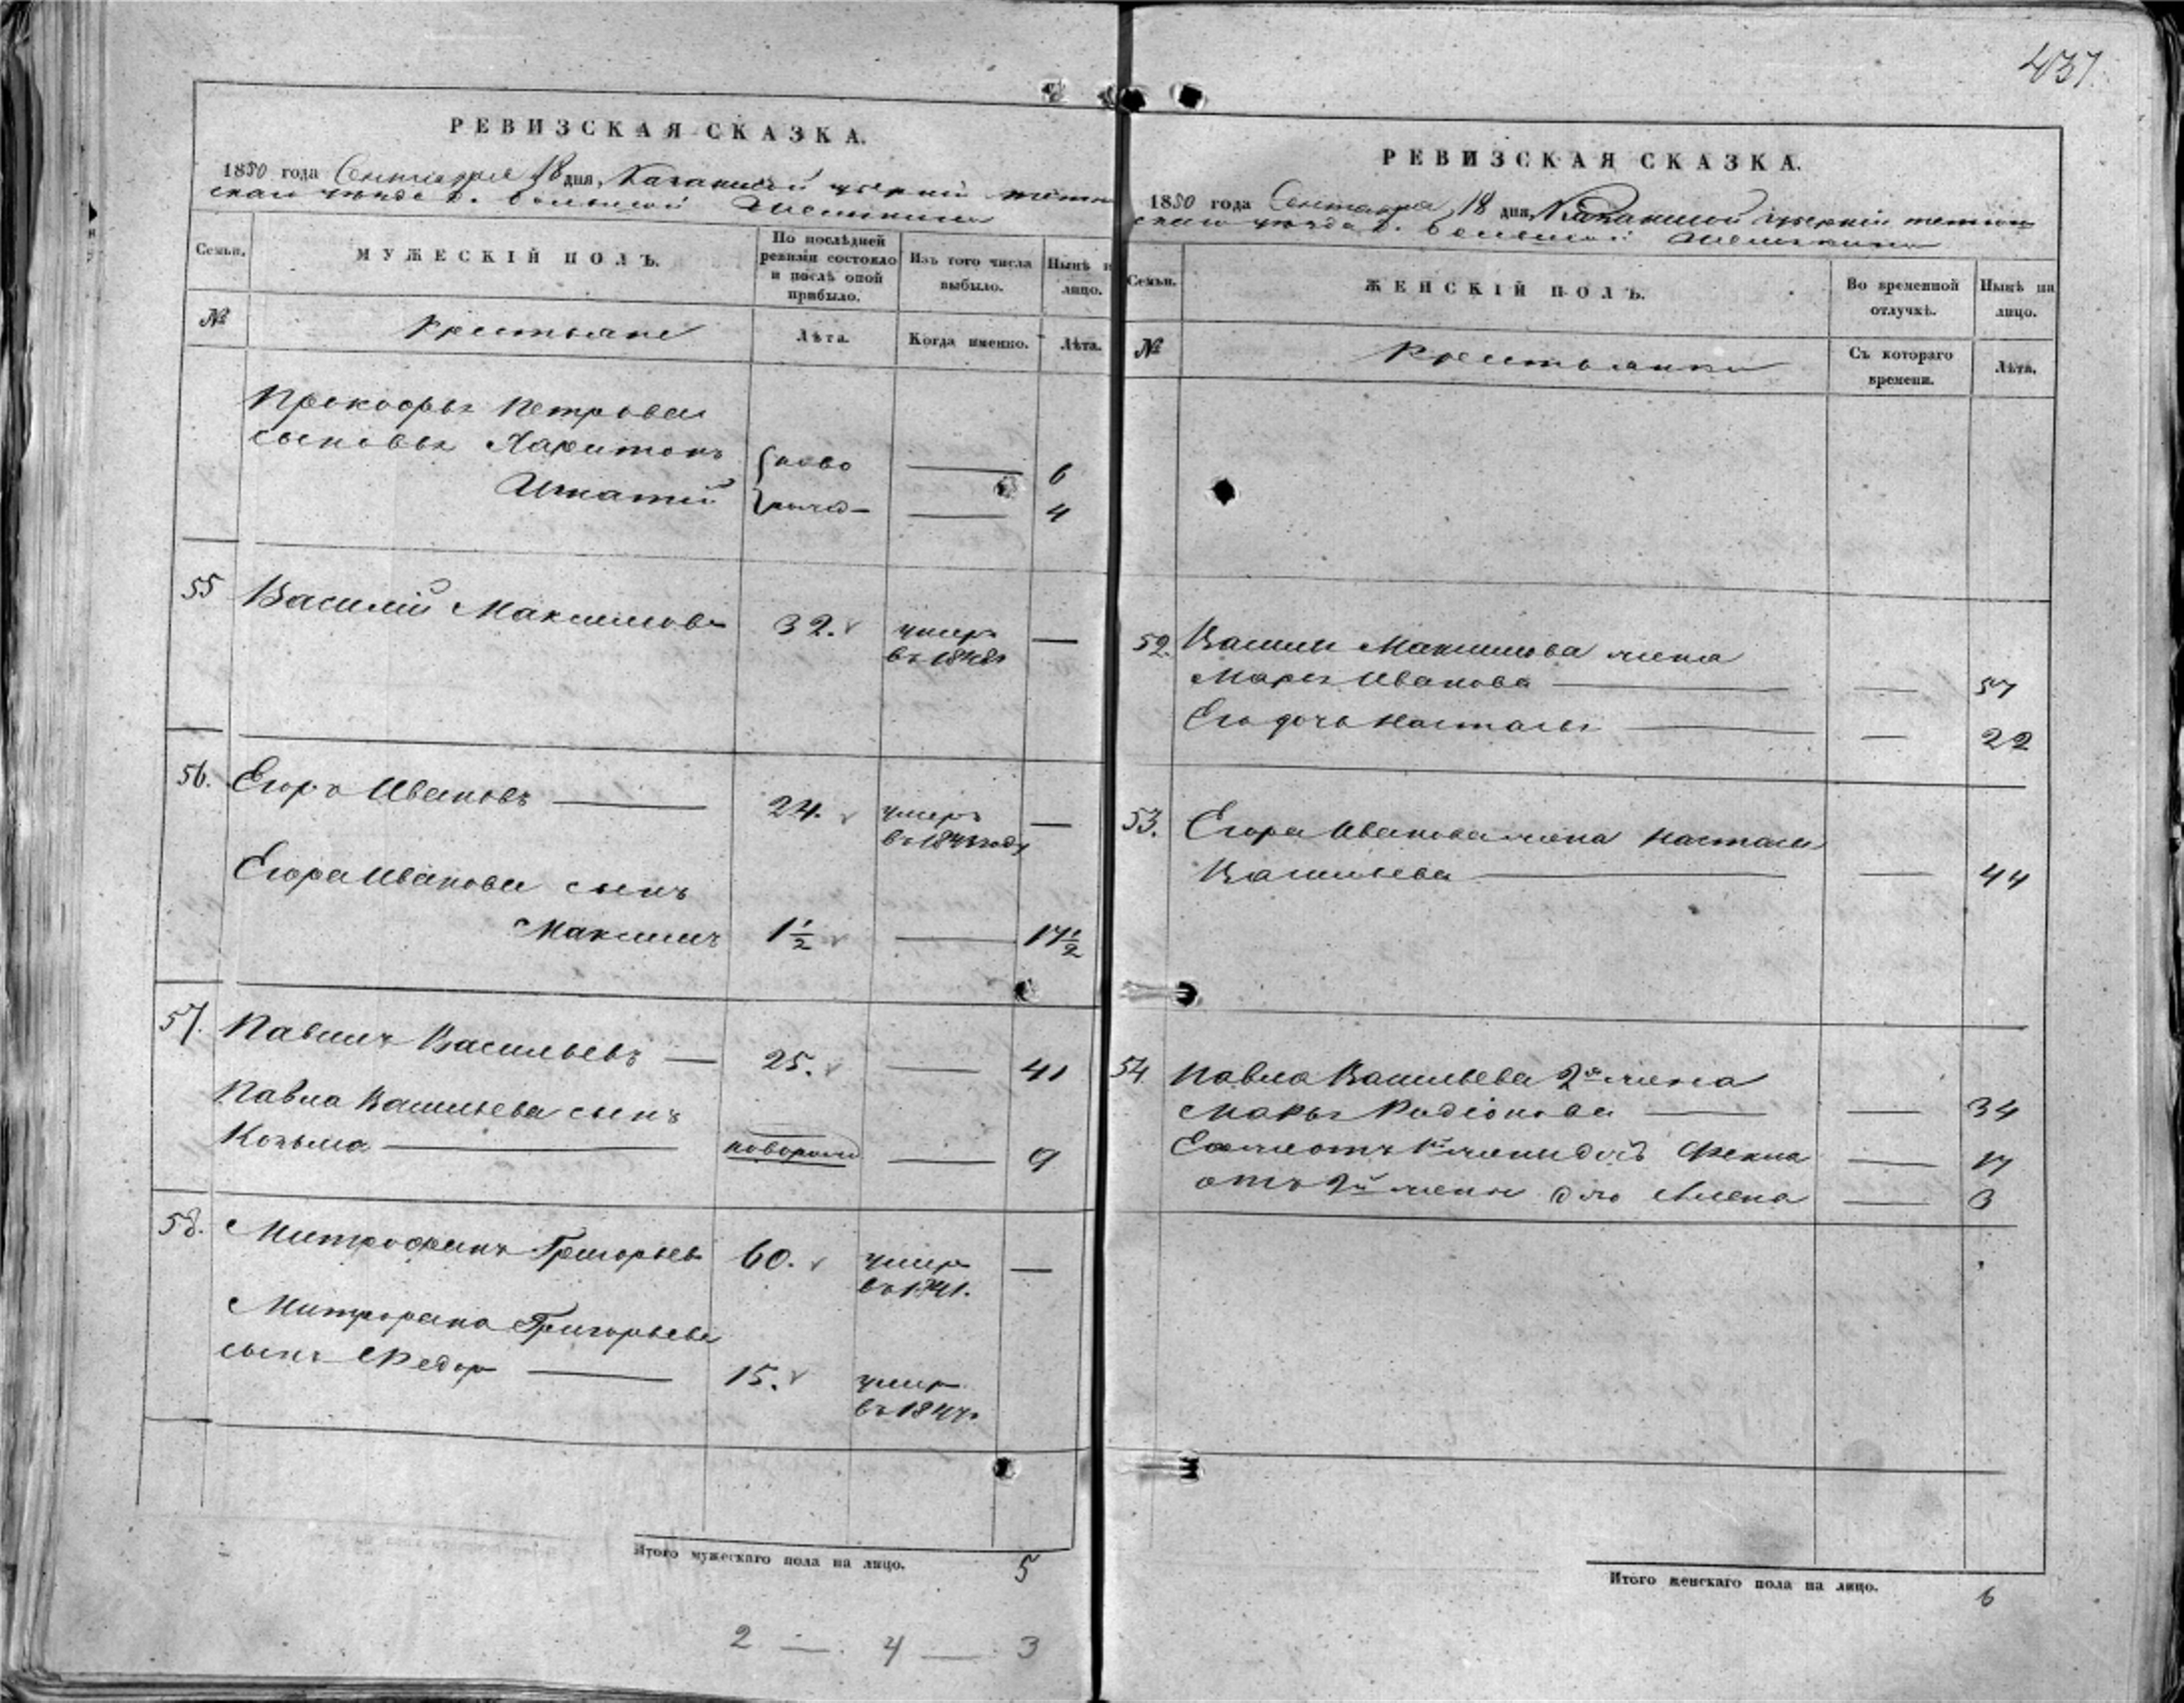 437
РЕВИЗСКАЯ СКАЗКА.
1850 года Сентября 18 дня, Казанской губернии
скаго уезда д. Большой
Семьи.
МУЖЕСКІЙ ПОЛЪ.
По послѣдней ревизіи состояло и послѣ оной прибыло.
Изъ того числа выбыло.
Нынѣ на лицо.
№
Крестьяне
Лѣта.
Когда именно.
Лѣта.
Прокофья Петрова
сыновья Харитонъ
ново
6
Игнатій
4
55 Василій Максимовъ 32. умеръ —
въ 1848
56. Егоръ Ивановъ — 24. умеръ —
Егора Иванова сынъ
Максимъ 1 1/2 — 17 1/2
57. Павилъ Васильевъ — 25. — 41
Павла Васильева сынъ
Козьма — поворожд — 9
58. Митрофанъ Григорьев 60. умеръ —
въ 1841.
Митрофана Григорьева
сынъ Федор — 15. умер
въ 1844
Итого мужескаго пола на лицо. 5
2 — 4 — 3
РЕВИЗСКАЯ СКАЗКА.
1850 года Сентября 18 дня, Казанской губерніи
скаго уезда д. Большой
Семьи.
ЖЕНСКІЙ ПОЛЪ.
Во временной отлучкѣ.
Нынѣ на лицо.
№
Крестьянки
Съ котораго времени.
Лѣта.
52. Васили Максимова жена
Марья Иванова — — 57
Его дочь Настасья — — 22
53. Егора Иванова жена Настасья
Васильева — — 44
54. Павла Васильева 2я жена
Марья Радіонова — — 34
Его же отъ 1й жены дочь Фекла — 17
отъ 2й жены дочь Алена — 3
Итого женскаго пола на лицо. 6